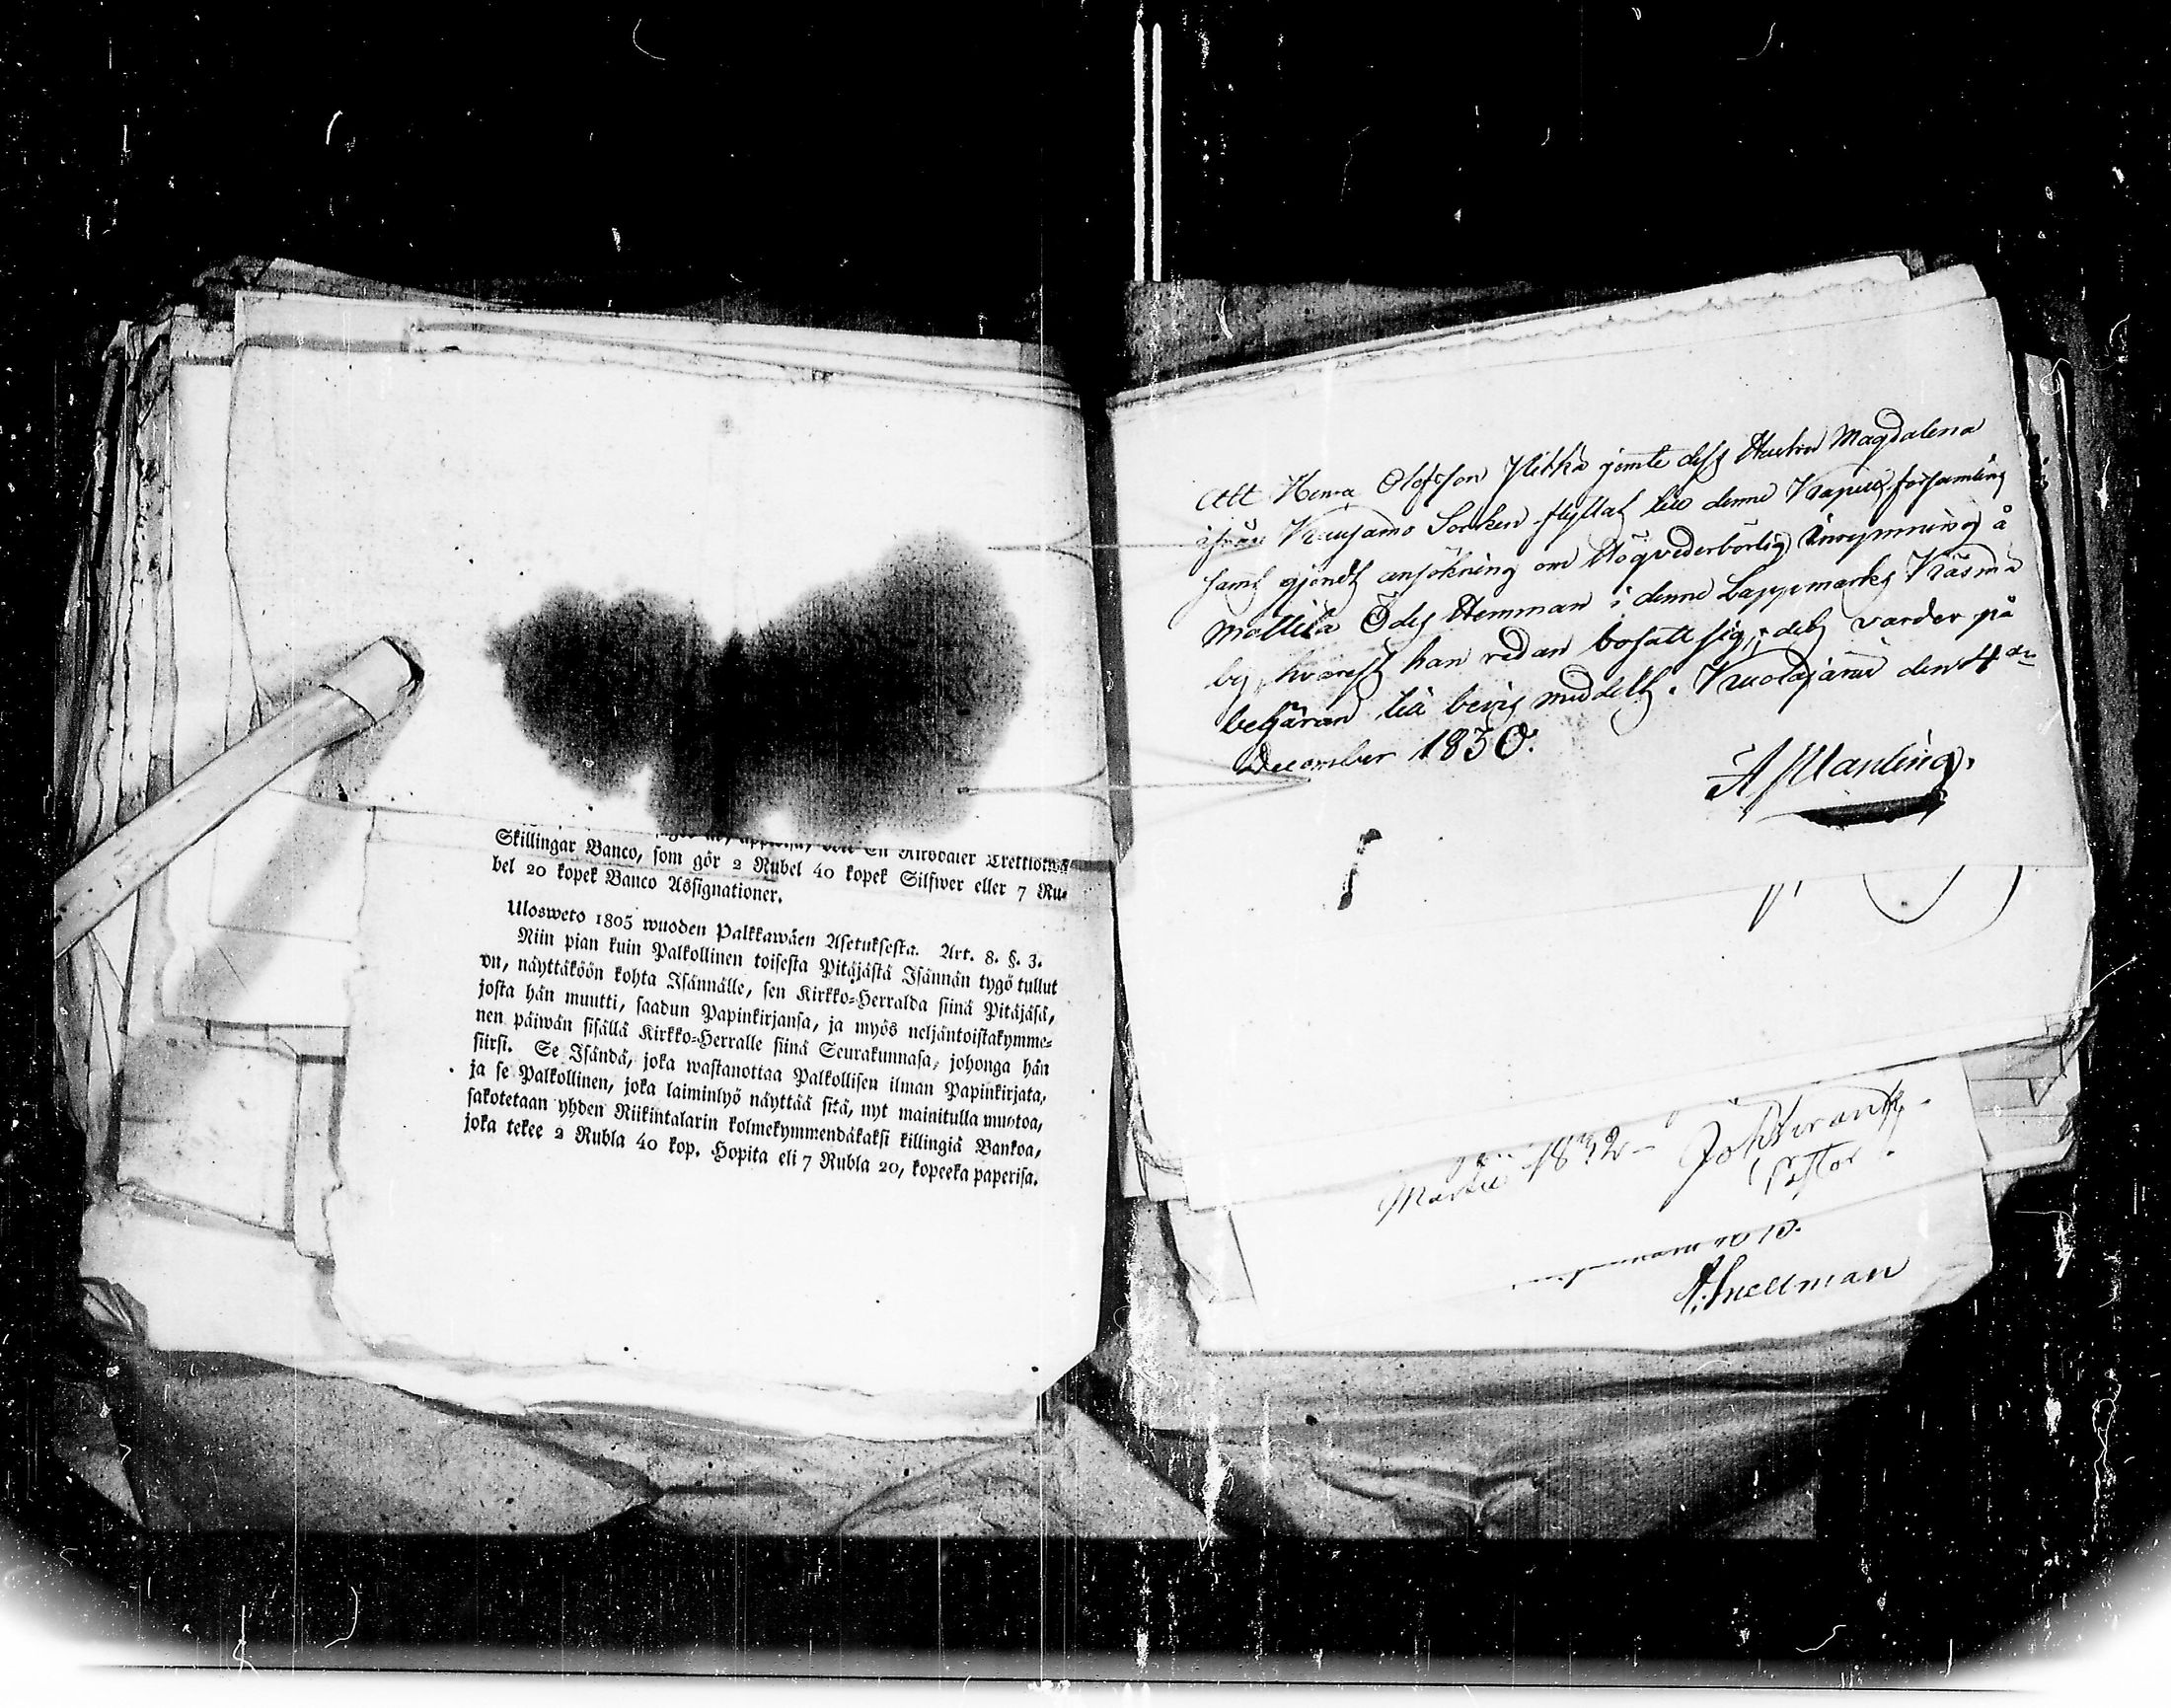 Skillingar Banco, som gör 2 Rubel 40 kopek Silfwer eller 7 Ru-
bel 20 kopek Banco Assignationer.
Ulosweto 1805 wuoden Palkkawäen Asetuksesta. Art. 8. §. 3.
Niin pian kuin Palkollinen toisesta Pitäjästä Isännän tygö tullut
on, näyttäköön kohta Isännälle, sen Kirkko-Herralda siinä Pitäjäsä,
josta hän muutti, saadun Papinkirjansa, ja myös neljäntoistakymme-
nen päiwän sisällä Kirkko-Herralle siinä Seurakunnasa, johonga hän
siirsi. Se Isändä, joka wastanottaa Palkollisen ilman Papinkirjata,
ja se Palkollinen, joka laiminlyö näyttää sitä, nyt mainitulla muotoa,
sakotetaan yhden Riikintalarin kolmekymmendäkaksi killingiä Bankoa,
joka tekee 2 Rubla 40 kop. Hopita eli 7 Rubla 20, kopeeka paperisa.
Att Olofsson jemte dess Hustru Magdalena
ifrån Kuusamo Socken flyttat till denne Kapell församling
samt gjordt ansökning om Högvederbörlig inrymning å
Mattila Ödes Hemman i denne Lappmarks
by, hvarest han redan bosatt sig; det varder på
begäran till bevis meddelt. Kuolajärvi den 4de
December 1830.
Martii 1832
Pastor
A. Snellman